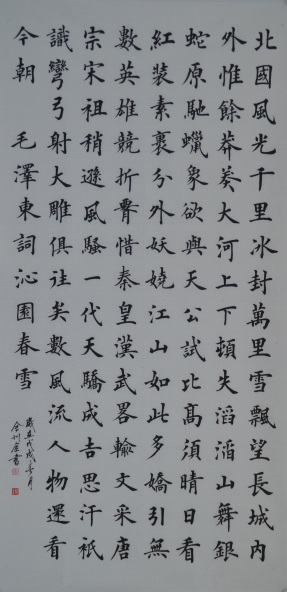 北國風光千里冰封萬里雪飄望長城内
外惟餘莽莽大河上下頓失滔滔山舞銀
蛇原馳蠟象欲與天公試比髙須晴日看
紅裝素裹分外妖嬈江山如此多嬌引無
數英雄競折腰惜秦皇漢武畧輸文采唐
宗宋祖稍遜風騷一代天驕成吉思汗衹
識彎弓射大雕俱往矣數風流人物還看
今朝 毛澤東詞沁園春雪
戊戌
書